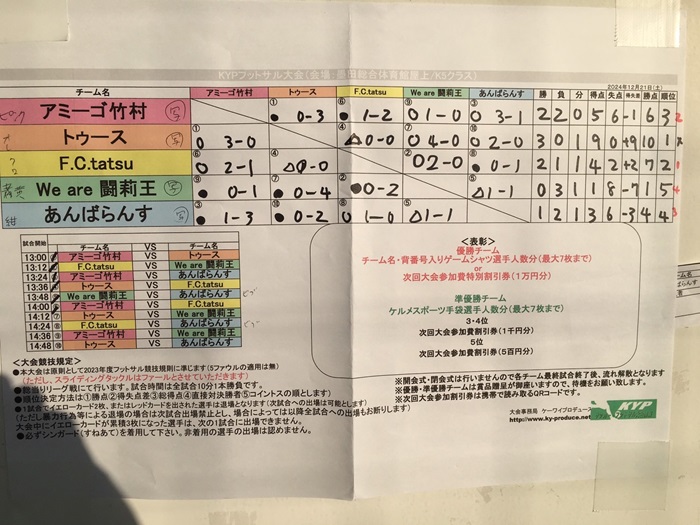 KYPフットサル大会(会場:墨田総合体育館屋上/K5クラス)
2024年12月21日(土)
チーム名 アミーゴ竹村 トゥース F.C.tatsu We are 闘莉王 あんばらんす 勝 負 分 得点 失点 得失差 勝点 順位
ピンク アミーゴ竹村 ① ● 0-3 ⑥ ● 1-2 ⑨ 0 1-0 ③ 0 3-1 2 2 0 5 6 -1 6 3
トゥース ① 0 3-0 ④ △ 0-0 ⑦ 0 4-0 ⑩ 0 2-0 3 0 1 9 0 +9 10 1
F.C.tatsu ⑥ 0 2-1 ④ △ 0-0 ② 0 2-0 ⑧ ● 0-1 2 1 1 4 2 +2 7 2
We are 闘莉王 ⑨ ● 0-1 ⑦ ● 0-4 ② ● 0-2 ⑤ △ 1-1 0 3 1 1 8 -7 1 5
紺 あんばらんす ③ ● 1-3 ⑩ ● 0-2 ⑧ 0 1-0 ⑤ △ 1-1 1 2 1 3 6 -3 4 4
試合開始 チーム名 VS チーム名
13:00 アミーゴ竹村 VS トゥース
13:12 F.C.tatsu VS We are 闘莉王
13:24 アミーゴ竹村 VS あんばらんす
13:36 トゥース VS F.C.tatsu
13:48 We are 闘莉王 VS あんばらんす
14:00 アミーゴ竹村 VS F.C.tatsu
14:12 ⑦ トゥース VS We are 闘莉王
14:24 ⑧ F.C.tatsu VS あんばらんす
14:36 ⑨ アミーゴ竹村 VS We are 闘莉王
14:48 ⑩ トゥース VS あんばらんす
<表彰>
優勝チーム
チーム名・背番号入りゲームシャツ選手人数分(最大7枚まで)
or
次回大会参加費特別割引券(1万円分)
準優勝チーム
ケルメスポーツ手袋選手人数分(最大7枚まで)
3・4位
次回大会参加費割引券(1千円分)
5位
次回大会参加費割引券(5百円分)
<大会競技規定>
●本大会は原則として2023年度フットサル競技規則に準じます(5ファウルの適用は無)
(ただし、スライディングタックルはファールとさせていただきます)
●総当りリーグ戦にて行います。試合時間は全試合10分1本勝負です。
●順位決定方法は①勝点②得失点差③総得点④直接対決勝者⑤コイントスの順とします)
●1試合でイエローカード2枚、またはレッドカードを出された選手は退場となります(次試合への出場は可能とします)
(ただし暴力行為等による退場の場合は次試合出場禁止とし、場合によっては以降全試合への出場もお断りします)
大会中にイエローカードが累積3枚になった選手は、次の1試合に出場できません。
●必ずシンガード(すねあて)を着用して下さい。非着用の選手の出場は認めません。
※開会式・閉会式は行いませんので各チーム最終試合終了後、流れ解散となります
※優勝・準優勝チームは賞品贈呈が御座いますので、待機をお願い致します。
※次回大会参加費割引券は携帯で読み取るQRコードです。
大会事務局 ケーワイプロデュース
http://www.ky-produce.net/
KYP